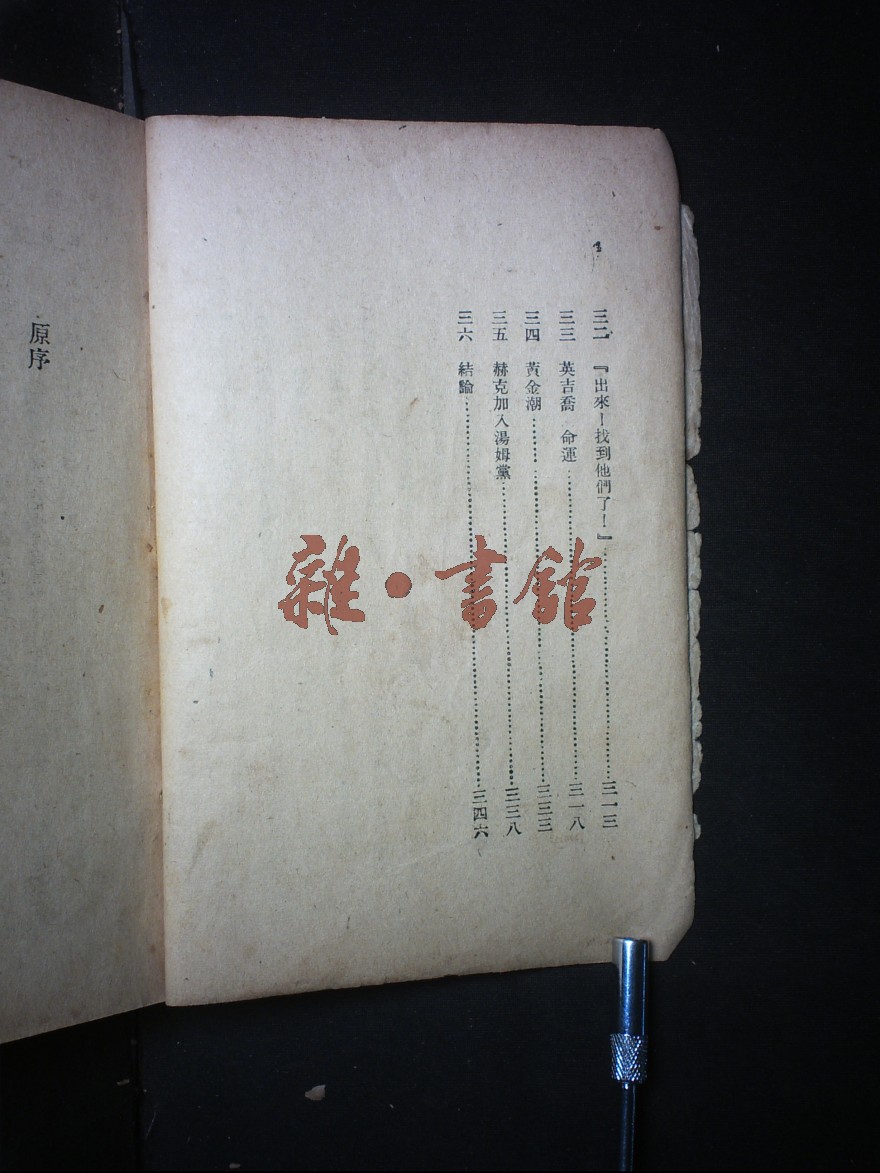 三二 『出來！找到他們了！』……三一三
三三 英吉喬 命運……三一八
三四 黃金潮……三三三
三五 赫克加入湯姆黨……三三八
三六 結論……三四六
原序
雜·書館